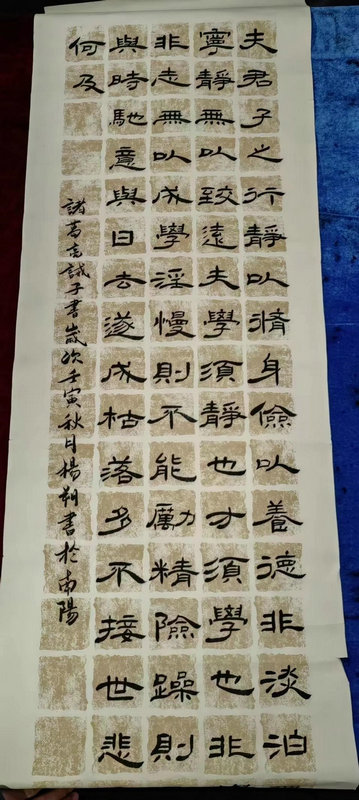 夫君子之行靜以脩身儉以養德非淡泊
寧靜無以致遠夫學須靜也才須學也非
非志無以成學淫慢則不能勵精險躁則
與時馳意與日去遂成枯落多不接世悲
何及
諸葛亮誡子書歲次壬寅秋月楊書於南陽